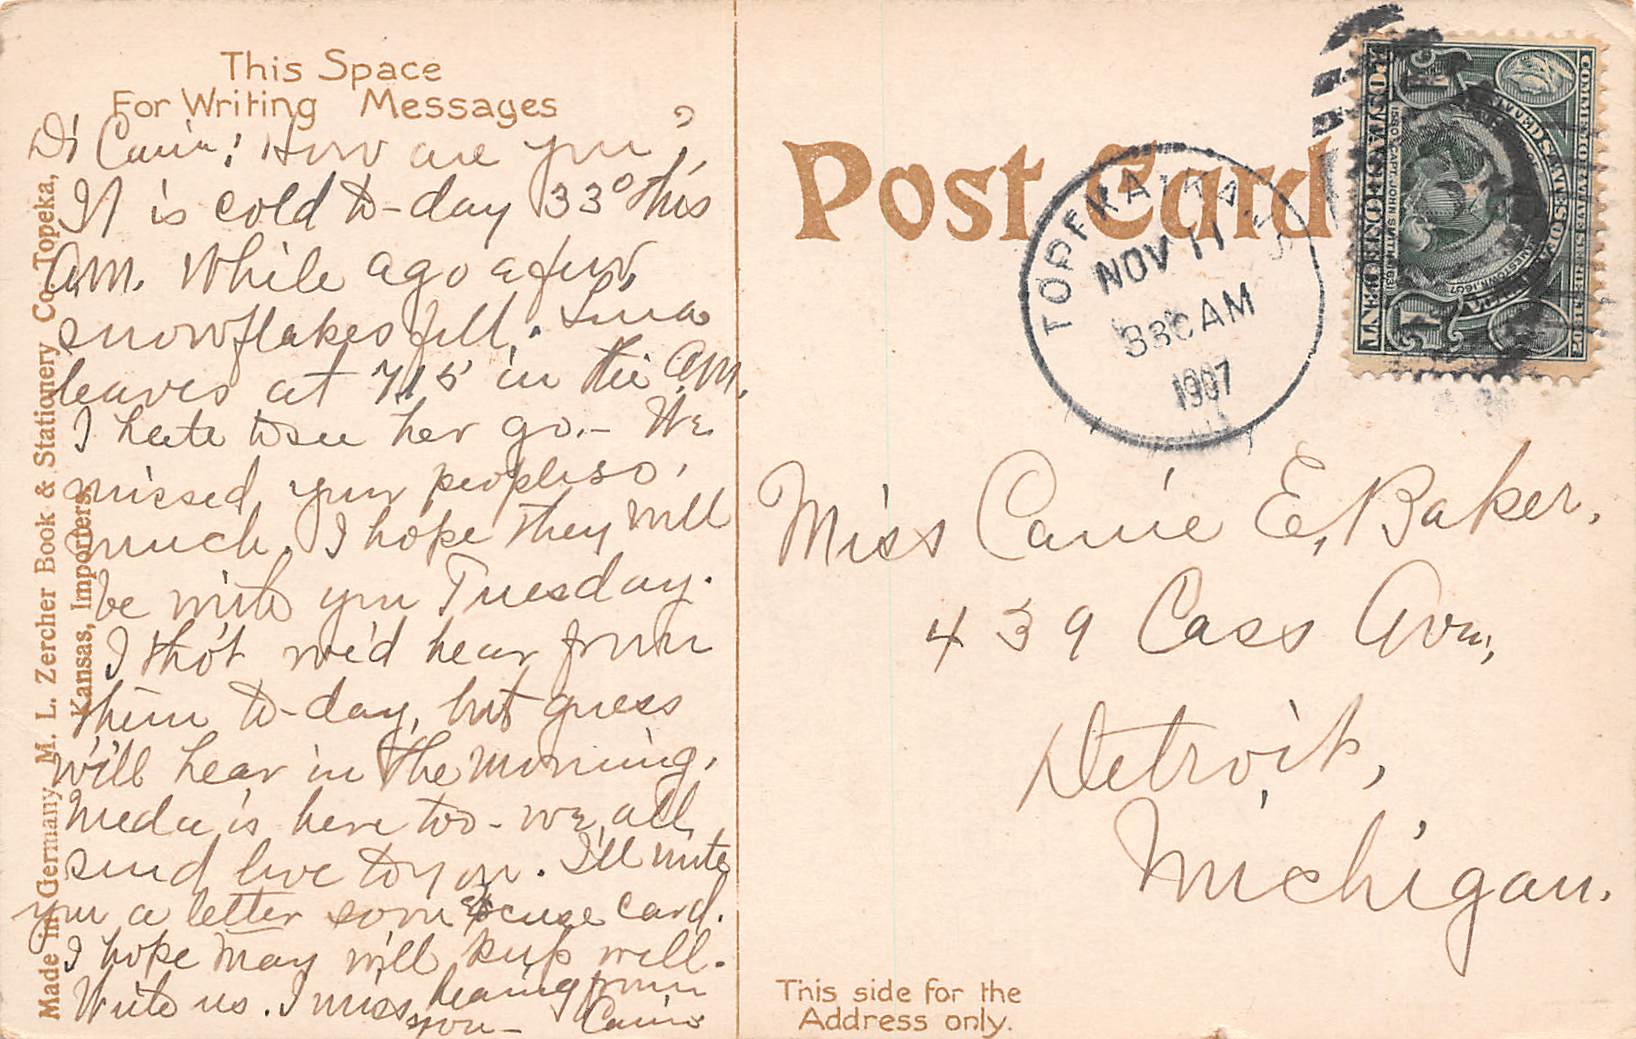 This Space
For Writing Messages
Dr Carrie! How are you?
It is cold to-day 33° this
A.M. While ago a few
snowflakes fell.
leaves at 7.15 in the A.M.
I hate to see her go. - We
missed your people so
much. I hope they will
be with you Tuesday.
I tho't we'd hear from
them to-day, but guess
will hear in the morning.
Meda is here too - we all
send love to you. I'll write
you a letter soon excuse card.
I hope May will keep well.
Write us. I miss hearing from
you - Carrie
Made in Germany, M. L. Zercher Book & Stationery Co. Topeka,
Kansas, Importers.
Post Card
TOPEKA, KANS
NOV 11
830 AM
1907
COMMEMORATIVE SERIES 1907
UNITED STATES OF AMERICA
FOUNDING OF JAMESTOWN 1607
1580 CAPT. JOHN SMITH 1631
1 1
Miss Carrie E. Baker,
439 Cass Ave.,
Detroit,
Michigan.
This side for the
Address only.